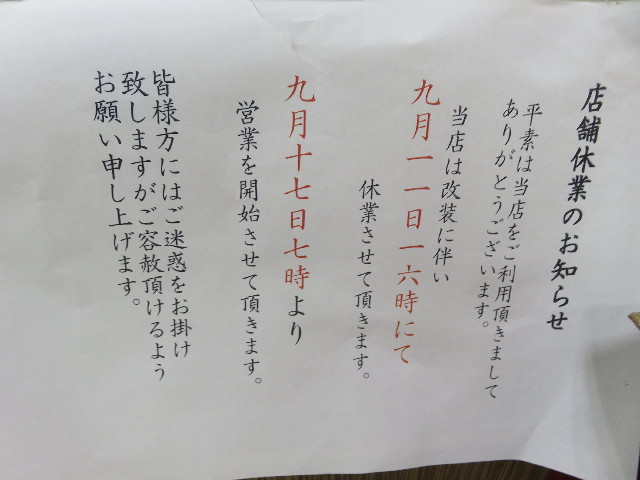 店舗休業のお知らせ
平素は当店をご利用頂きまして
ありがとうございます。
当店は改装に伴い
九月一一日一六時にて
休業させて頂きます。
九月十七日七時より
営業を開始させて頂きます。
皆様方にはご迷惑をお掛け
致しますがご容赦頂けるよう
お願い申し上げます。